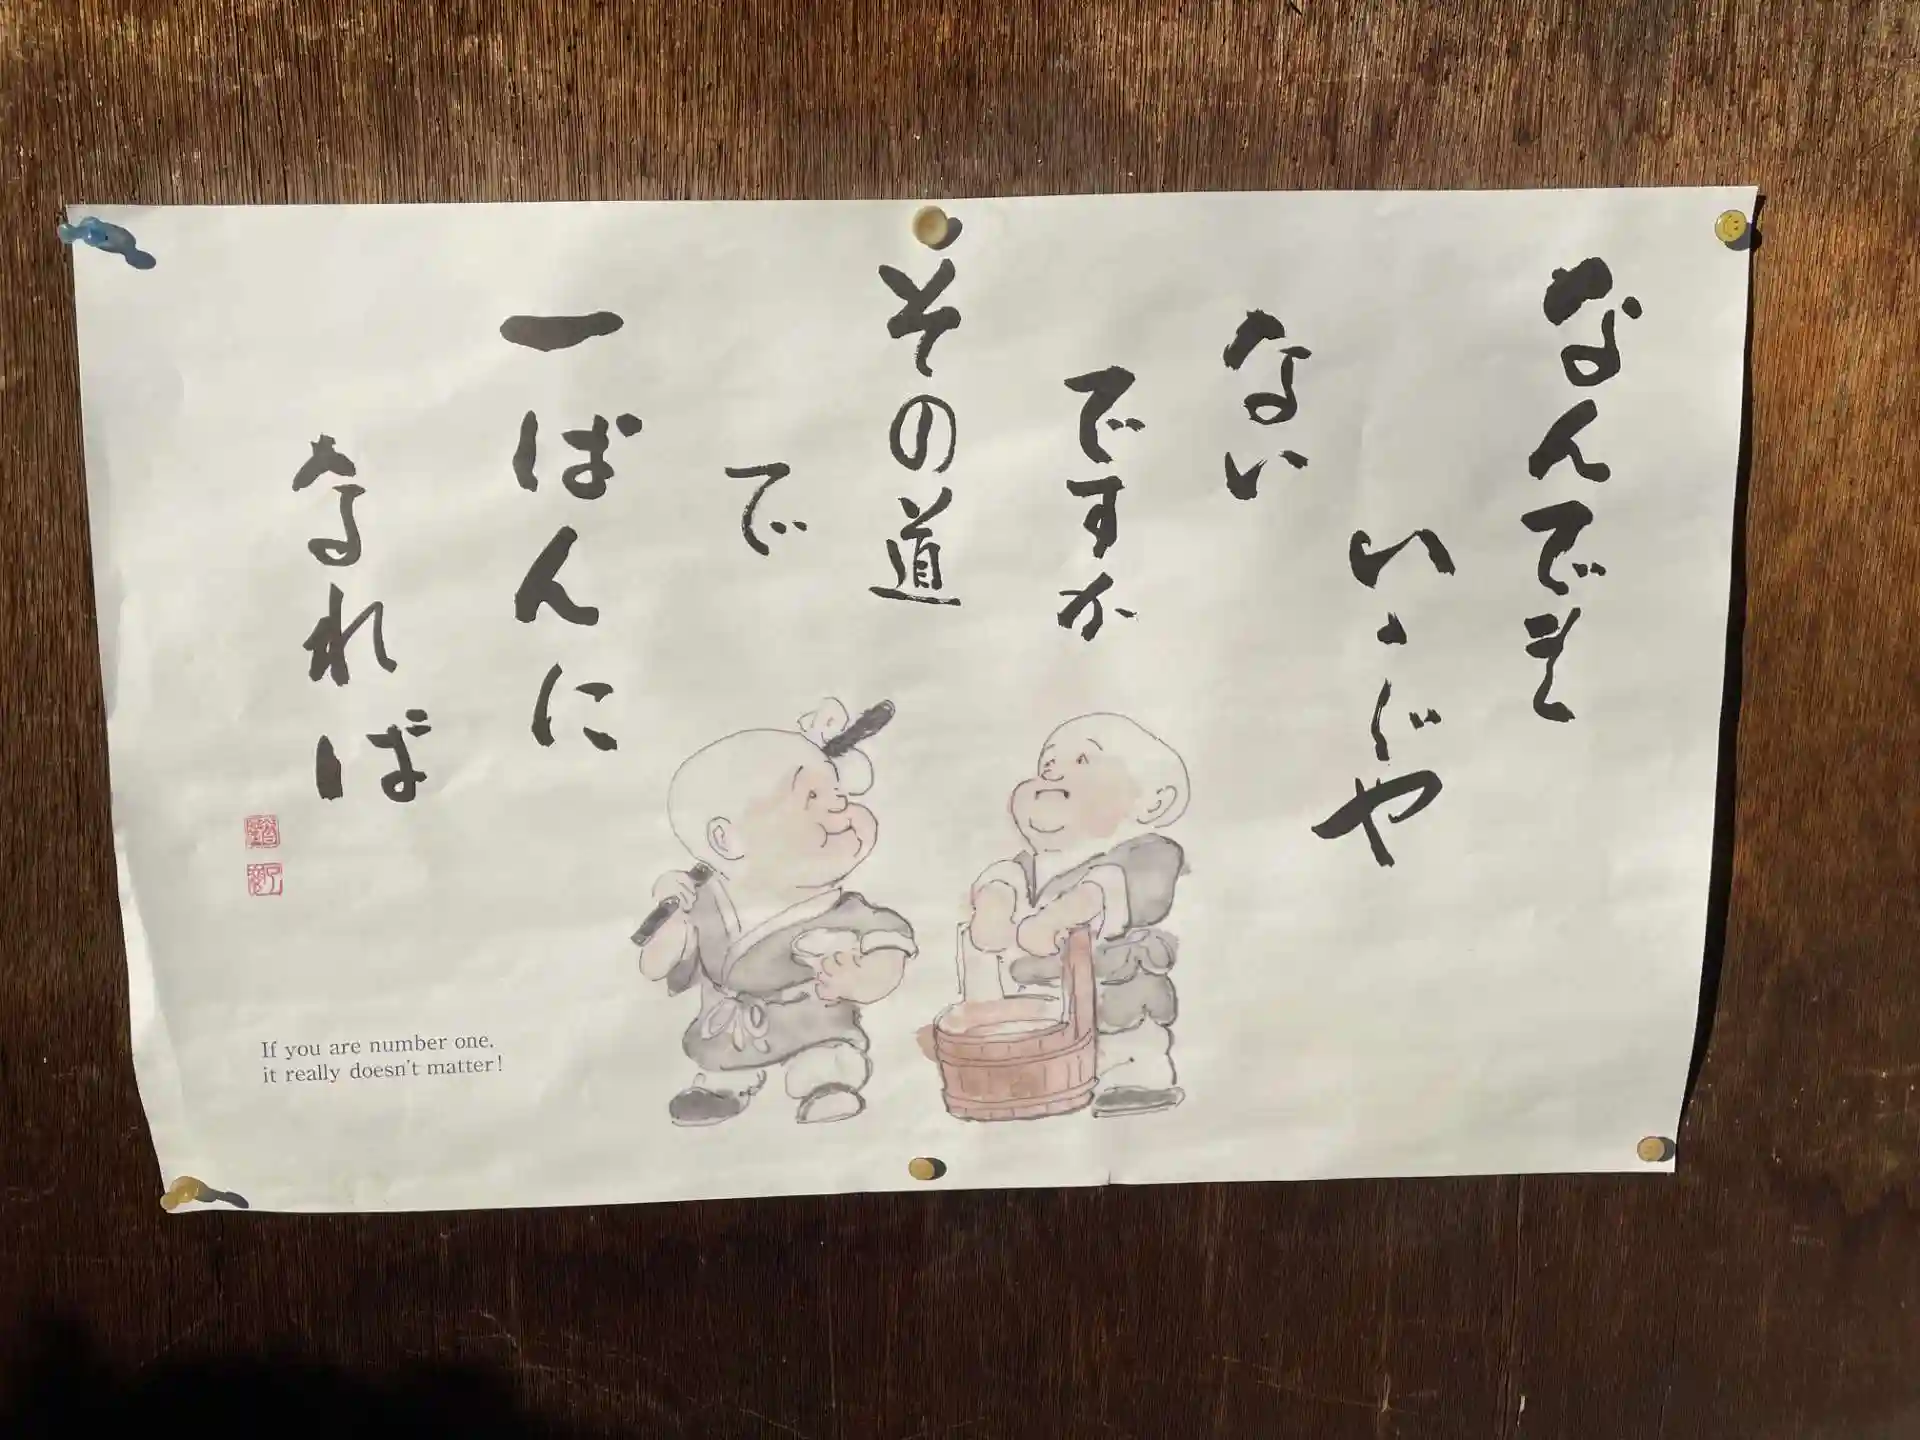 なんでも
いゝじゃ
ない
ですか
その道
で
一ばんに
なれば
If you are number one.
it really doesn't matter!